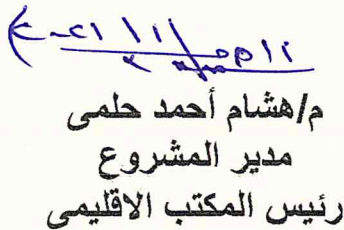 م/هشام أحمد حلمى
مدير المشروع
رئيس المكتب الاقليمى